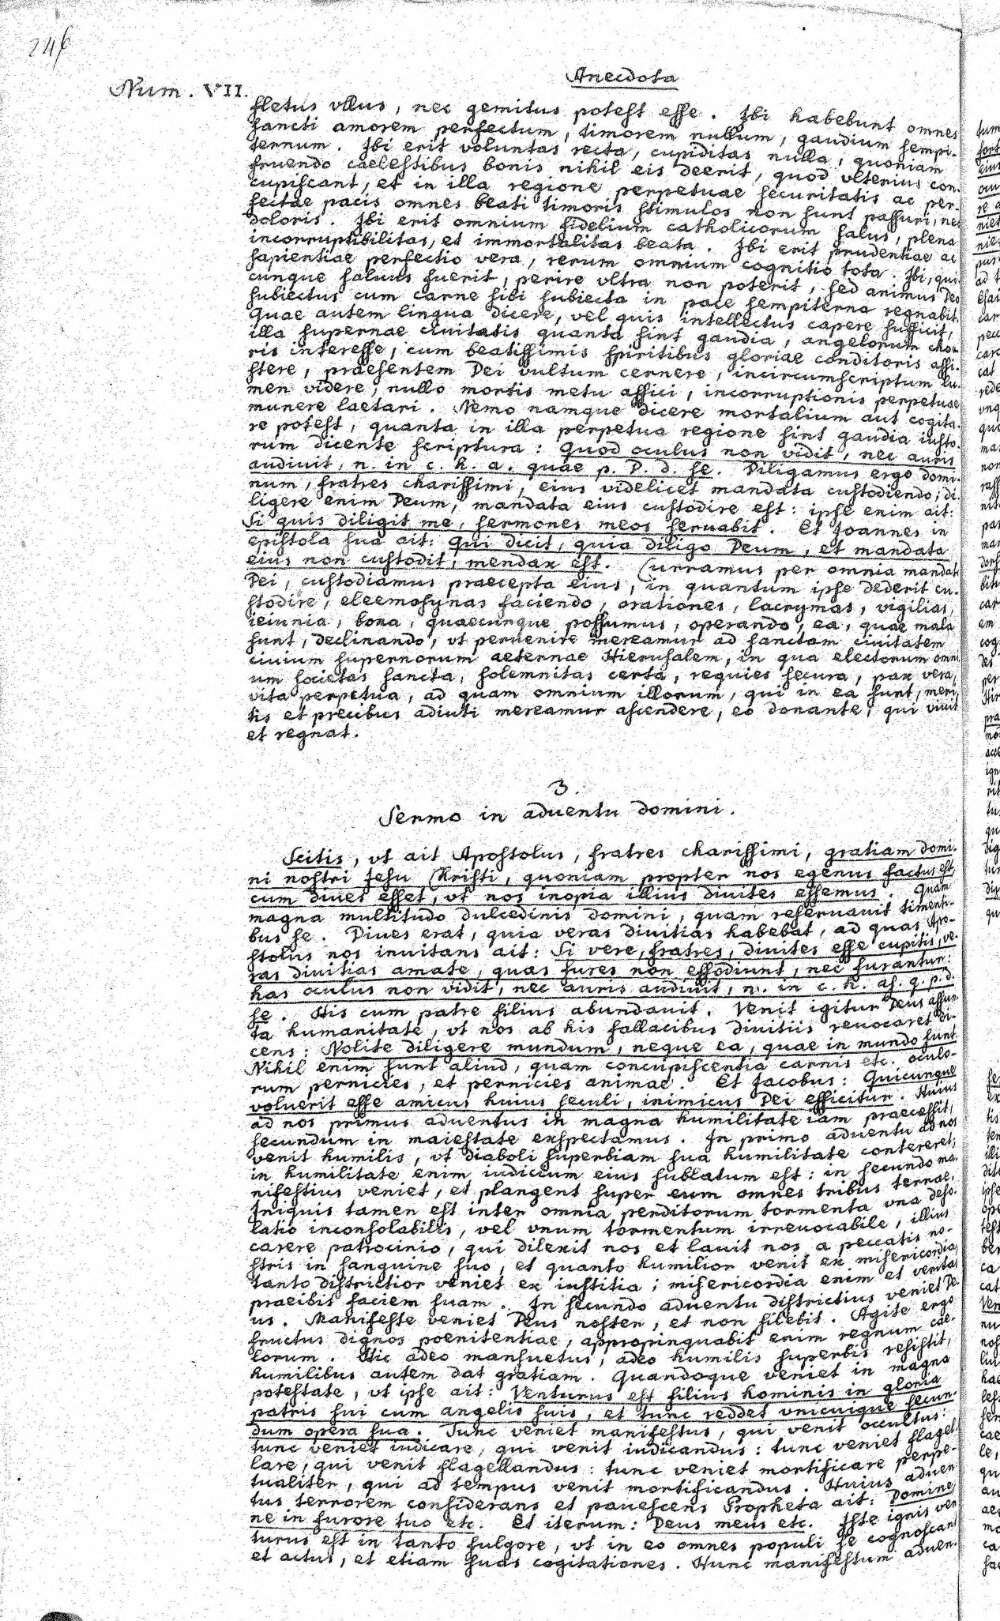 246
Anecdota
Num. VII.
fletus vllus, nec gemitus potest esse. Ibi habebunt omnes
sancti amorem perfectum, timorem nullum, gaudium sempi-
ternum. Ibi erit voluntas recta, cupiditas nulla, quoniam
fruendo caelestibus bonis nihil eis deerit, quod vlterius con-
cupiscant, et in illa regione perpetuae securitatis ac per-
fectae pacis omnes beati timoris stimulos non sunt passuri, nec
doloris. Ibi erit omnium fidelium catholicorum salus, plena
incorruptibilitas, et immortalitas beata. Ibi erit prudentiae ac
sapientiae perfectio vera, rerum omnium cognitio tota. Ibi, qui-
cunque saluus fuerit, perire vltra non poterit, sed animus Deo
subiectus cum carne sibi subiecta in pace sempiterna regnabit.
Quae autem lingua dicere, vel quis intellectus capere sufficit,
illa supernae ciuitatis quanta sint gaudia, angelorum cho-
ris interesse, cum beatissimis spiritibus gloriae conditoris assi-
stere, praesentem Dei vultum cernere, incircumscriptum lu-
men videre, nullo mortis metu affici, incorruptionis perpetuae
munere laetari. Nemo namque dicere mortalium aut cogita-
re potest, quanta in illa perpetua regione sint gaudia iusto-
rum dicente scriptura: Quod oculus non vidit, nec auris
audiuit, n. in c. h. a. quae p. D. d. se. Diligamus ergo domi-
num, fratres charissimi, eius videlicet mandata custodiendo; di-
ligere enim Deum, mandata eius custodire est: ipse enim ait:
Si quis diligit me, sermones meos seruabit. Et Joannes in
epistola sua ait: Qui dicit, quia diligo Deum, et mandata
eius non custodit, mendax est. Curramus per omnia mandata
Dei, custodiamus praecepta eius, in quantum ipse dederit cu-
stodire, eleemosynas faciendo, orationes, lacrymas, vigilias,
ieiunia, bona, quaecunque possumus, operando, ea, quae mala
sunt, declinando, vt peruenire mereamur ad sanctam ciuitatem
ciuium supernorum aeternae Hierusalem, in qua electorum omni-
um societas sancta, solemnitas certa, requies secura, pax vera,
vita perpetua, ad quam omnium illorum, qui in ea sunt, meri-
tis et precibus adiuti mereamur ascendere, eo donante, qui viuit
et regnat.
3.
Sermo in aduentu domini.
Scitis, vt ait Apostolus, fratres charissimi, gratiam domi-
ni nostri Jesu Christi, quoniam propter nos egenus factus est,
cum diues esset, vt nos inopia illius diuites essemus. Quam
magna multitudo dulcedinis domini, quam reseruauit timenti-
bus se. Diues erat, quia veras diuitias habebat, ad quas Apo-
stolus nos inuitans ait: Si vere, fratres, diuites esse cupitis, ve-
ras diuitias amate, quas fures non effodiunt, nec furantur:
has oculus non vidit, nec auris audiuit, n. in c. h. as. q. p. d.
se. His cum patre filius abundauit. Venit igitur Deus assum-
ta humanitate, vt nos ab his fallacibus diuitiis reuocaret di-
cens: Nolite diligere mundum, neque ea, quae in mundo sunt.
Nihil enim sunt aliud, quam concupiscentia carnis etc. oculo-
rum pernicies, et pernicies animae. Et Jacobus: Quicunque
voluerit esse amicus huius seculi, inimicus Dei efficitur. Huius
ad nos primus aduentus in magna humilitate iam praecessit,
secundum in maiestate exspectamus. In primo aduentu ad nos
venit humilis, vt diaboli superbiam sua humilitate contereret;
in humilitate enim iudicium eius sublatum est: in secundo ma-
nifestius veniet, et plangent super eum omnes tribus terrae.
Iniquis tamen est inter omnia perditorum tormenta vna deso-
latio inconsolabilis, vel vnum tormentum irreuocabile, illius
carere patrocinio, qui dilexit nos et lauit nos a peccatis no-
stris in sanguine suo, et quanto humilior venit ex misericordia,
tanto districtior veniet ex iustitia; misericordia enim et veritas
praeibit faciem suam. In secundo aduentu districtius veniet De-
us. Manifeste veniet Deus noster, et non silebit. Agite ergo
fructus dignos poenitentiae, appropinquabit enim regnum cae-
lorum. Hic adeo mansuetus, adeo humilis superbis resistit,
humilibus autem dat gratiam. Quandoque veniet in magna
potestate, vt ipse ait: Venturus est filius hominis in gloria
patris sui cum angelis suis, et tunc reddet vnicuique secun-
dum opera sua. Tunc veniet manifestus, qui venit occultus:
tunc veniet iudicare, qui venit iudicandus: tunc veniet flagel-
lare, qui venit flagellandus: tunc veniet mortificare perpe-
tualiter, qui ad tempus venit mortificandus. Huius aduen-
tus terrorem considerans et pauescens Propheta ait: Domine,
ne in furore tuo etc. Et iterum: Deus meus etc. Iste ignis ven-
turus est in tanto fulgore, vt in eo omnes populi se cognoscant
et actus, et etiam suas cogitationes. Hunc manifestum aduen-